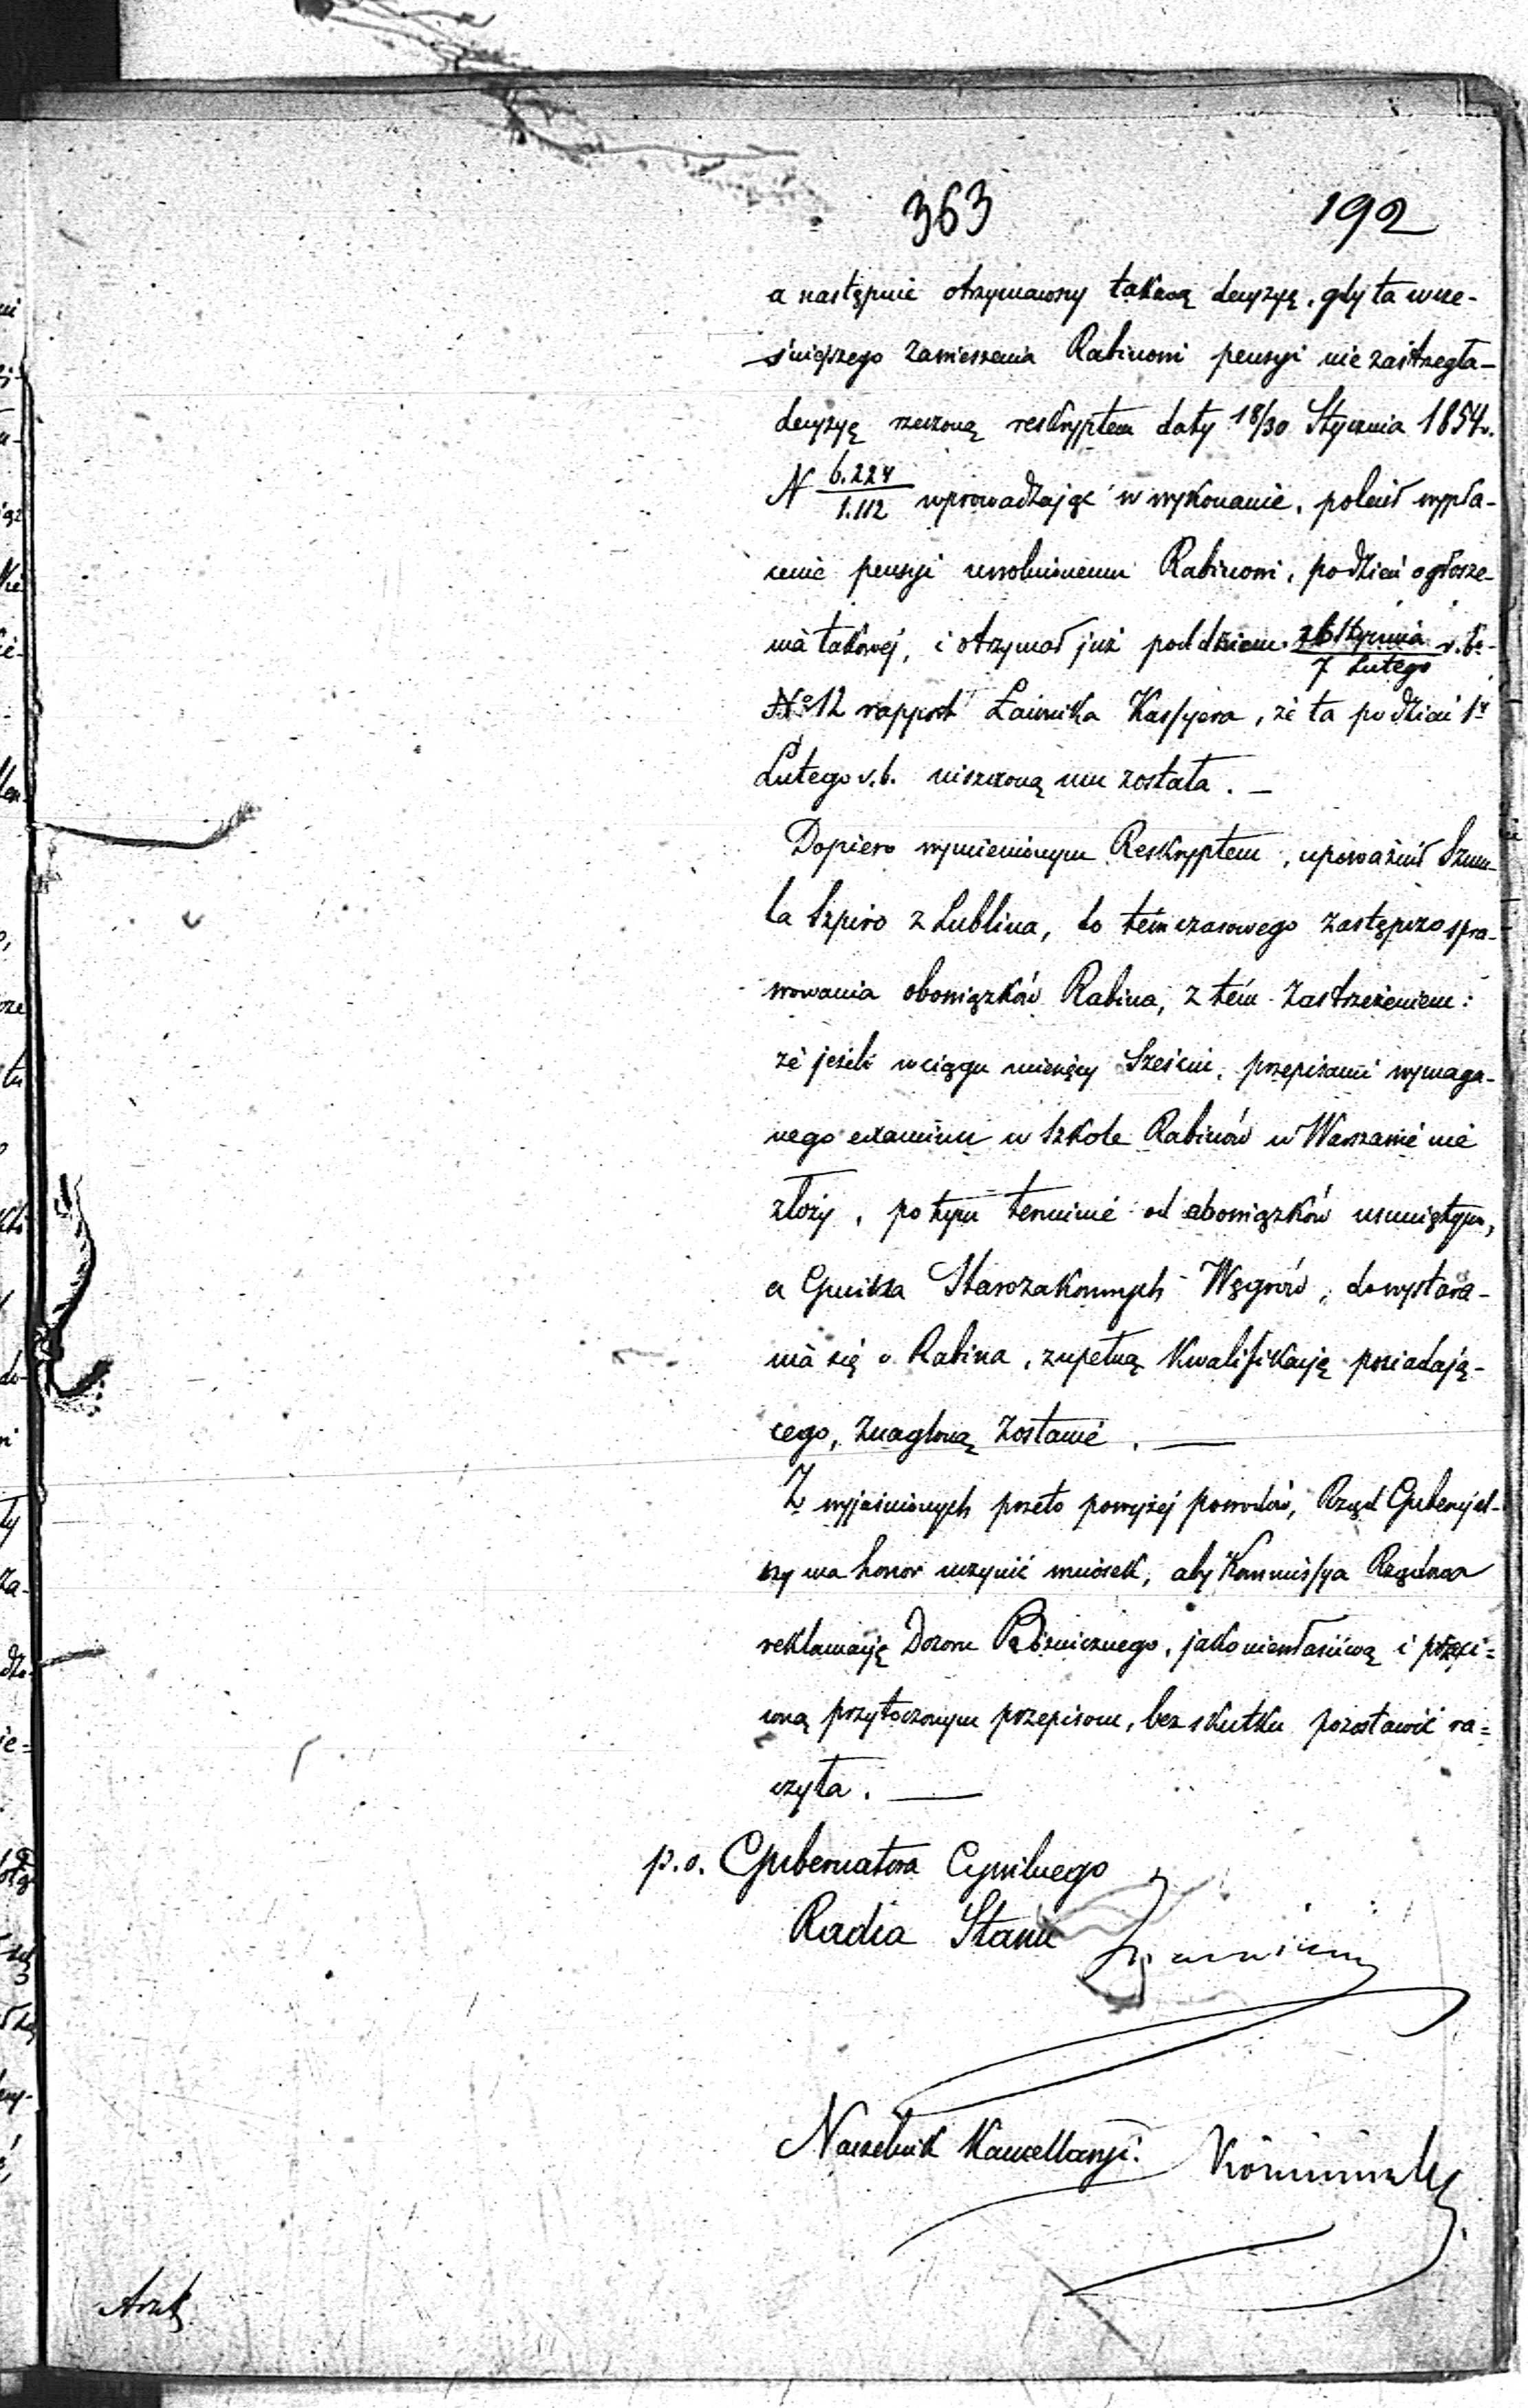 363 192
a następnie otrzymawszy takową decyzyę, gdy ta wcze-
śniejszego zawieszenia Rabinowi pensyi nie zastrzegła-
decyzyę rzeczoną reskryptem daty 18/30 Stycznia 1854 r.
N 6.224/1.112 wprowadzając w wykonanie, polecił wypła-
cenie pensyi uwolnionemu Rabinowi, po dzień ogłosze-
nia takowej, i otrzymał już pod dniem 26 Stycznia/7 Lutego r. b.
No 12 rapport Ławnika Kassyera, że ta po dzień 1
Lutego r. b. uiszczoną mu została. —
Dopiero wymienionym Reskryptem, upoważnił Szmu-
la Szpiro z Lublina, do témczasowego zastępczo spra-
wowania obowiązków Rabina, z tém zastrzeżeniem:
że jeżeli w ciągu miesięcy Sześciu, przepisami wymaga-
nego examinu w Szkole Rabinów w Warszawie nie
złoży, po tym terminie od obowiązków usuniętym,
a Gmina Starozakonnych Węgrów, do wystara-
nia się o Rabina, zupełną kwalifikacyę posiadają-
cego, znagloną zostanie. —
Z wyjaśnionych przeto powyżej powodów, Rząd Gubernial-
ny ma honor uczynić wniosek, aby Kommissya Rządowa
reklamacyę Dozoru Bóżniczego, jako niewłaściwą i przeci=
wną przytoczonym przepisom, bez skutku pozostawić ra=
czyła. —
p. o. Gubernatora Cywilnego
Radca Stanu
Naczelnik Kancellaryi